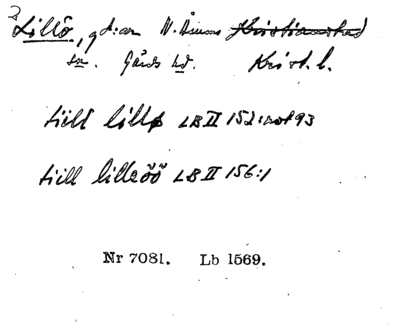 Lillö, gd:ar N. Åsums Kristianstad
sn. Gärds hd. Krist. l.
tiill lillø LB II 152: not 93
tiill lilleöö LB II 156:1
Nr 7081. Lb 1569.